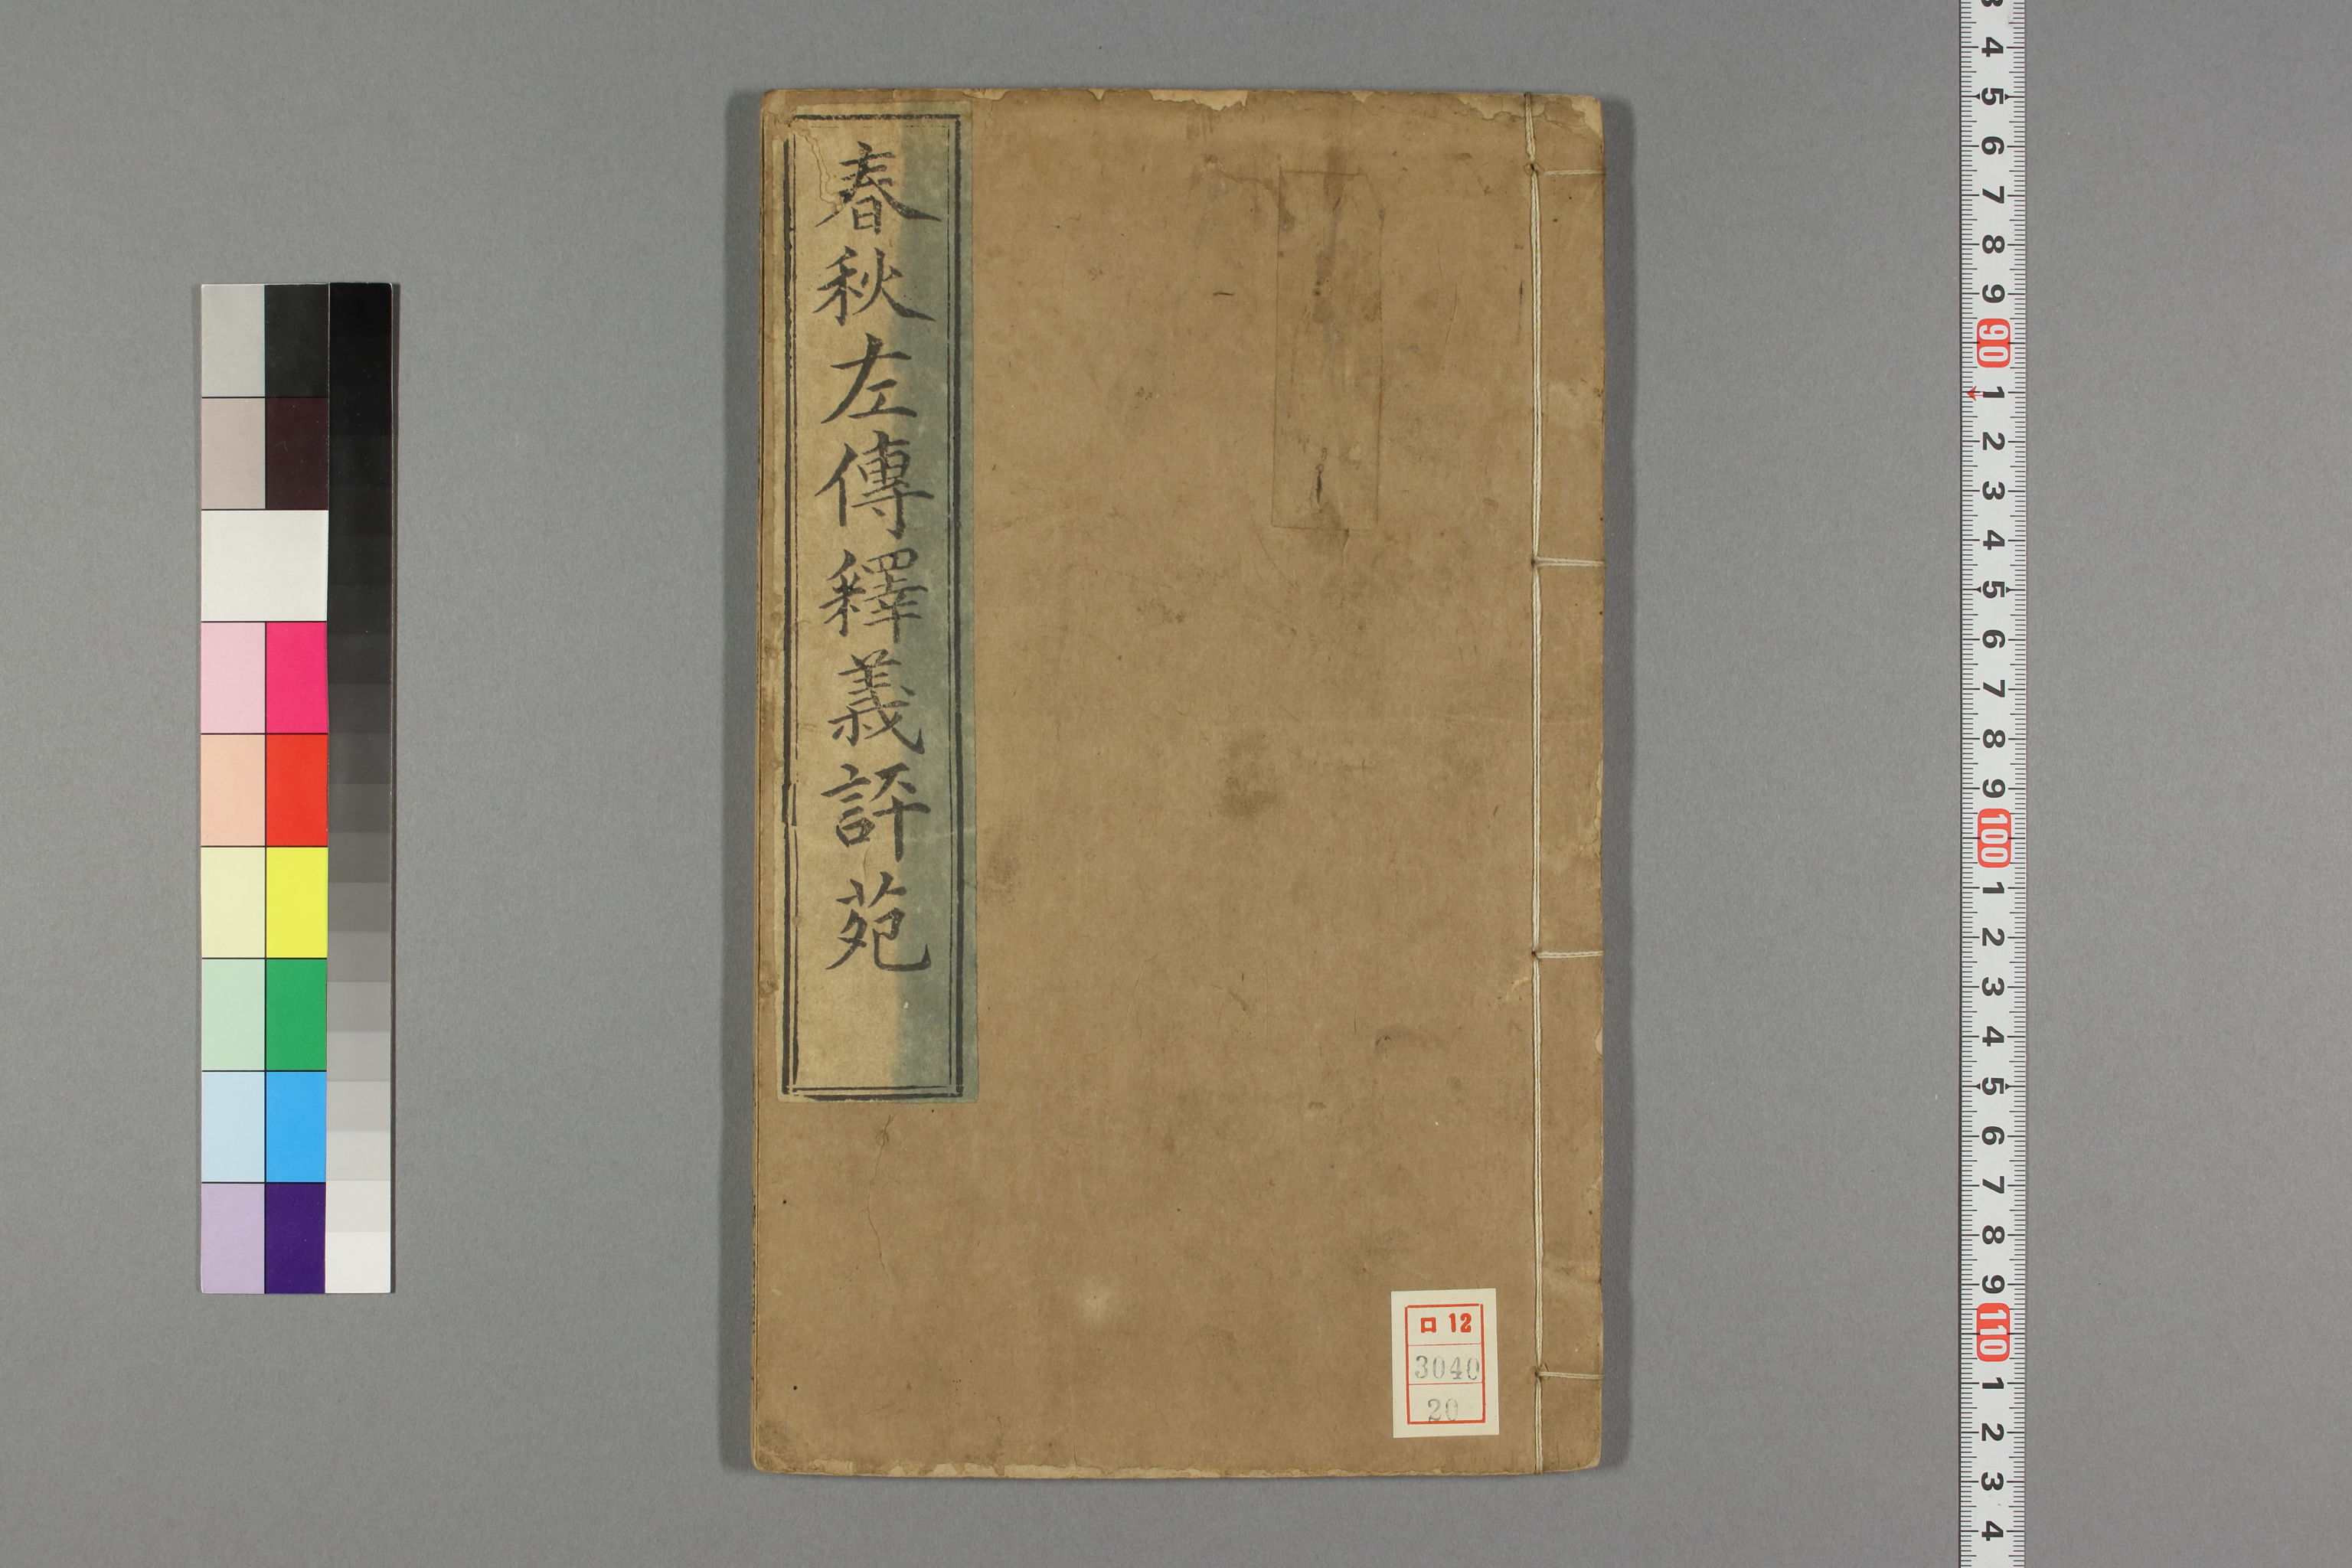 春秋左傳釋義評苑
ロ 12
3040
20
3
4
5
6
7
8
9
90
1
2
3
4
5
6
7
8
9
100
1
2
3
4
5
6
7
8
9
110
1
2
3
4